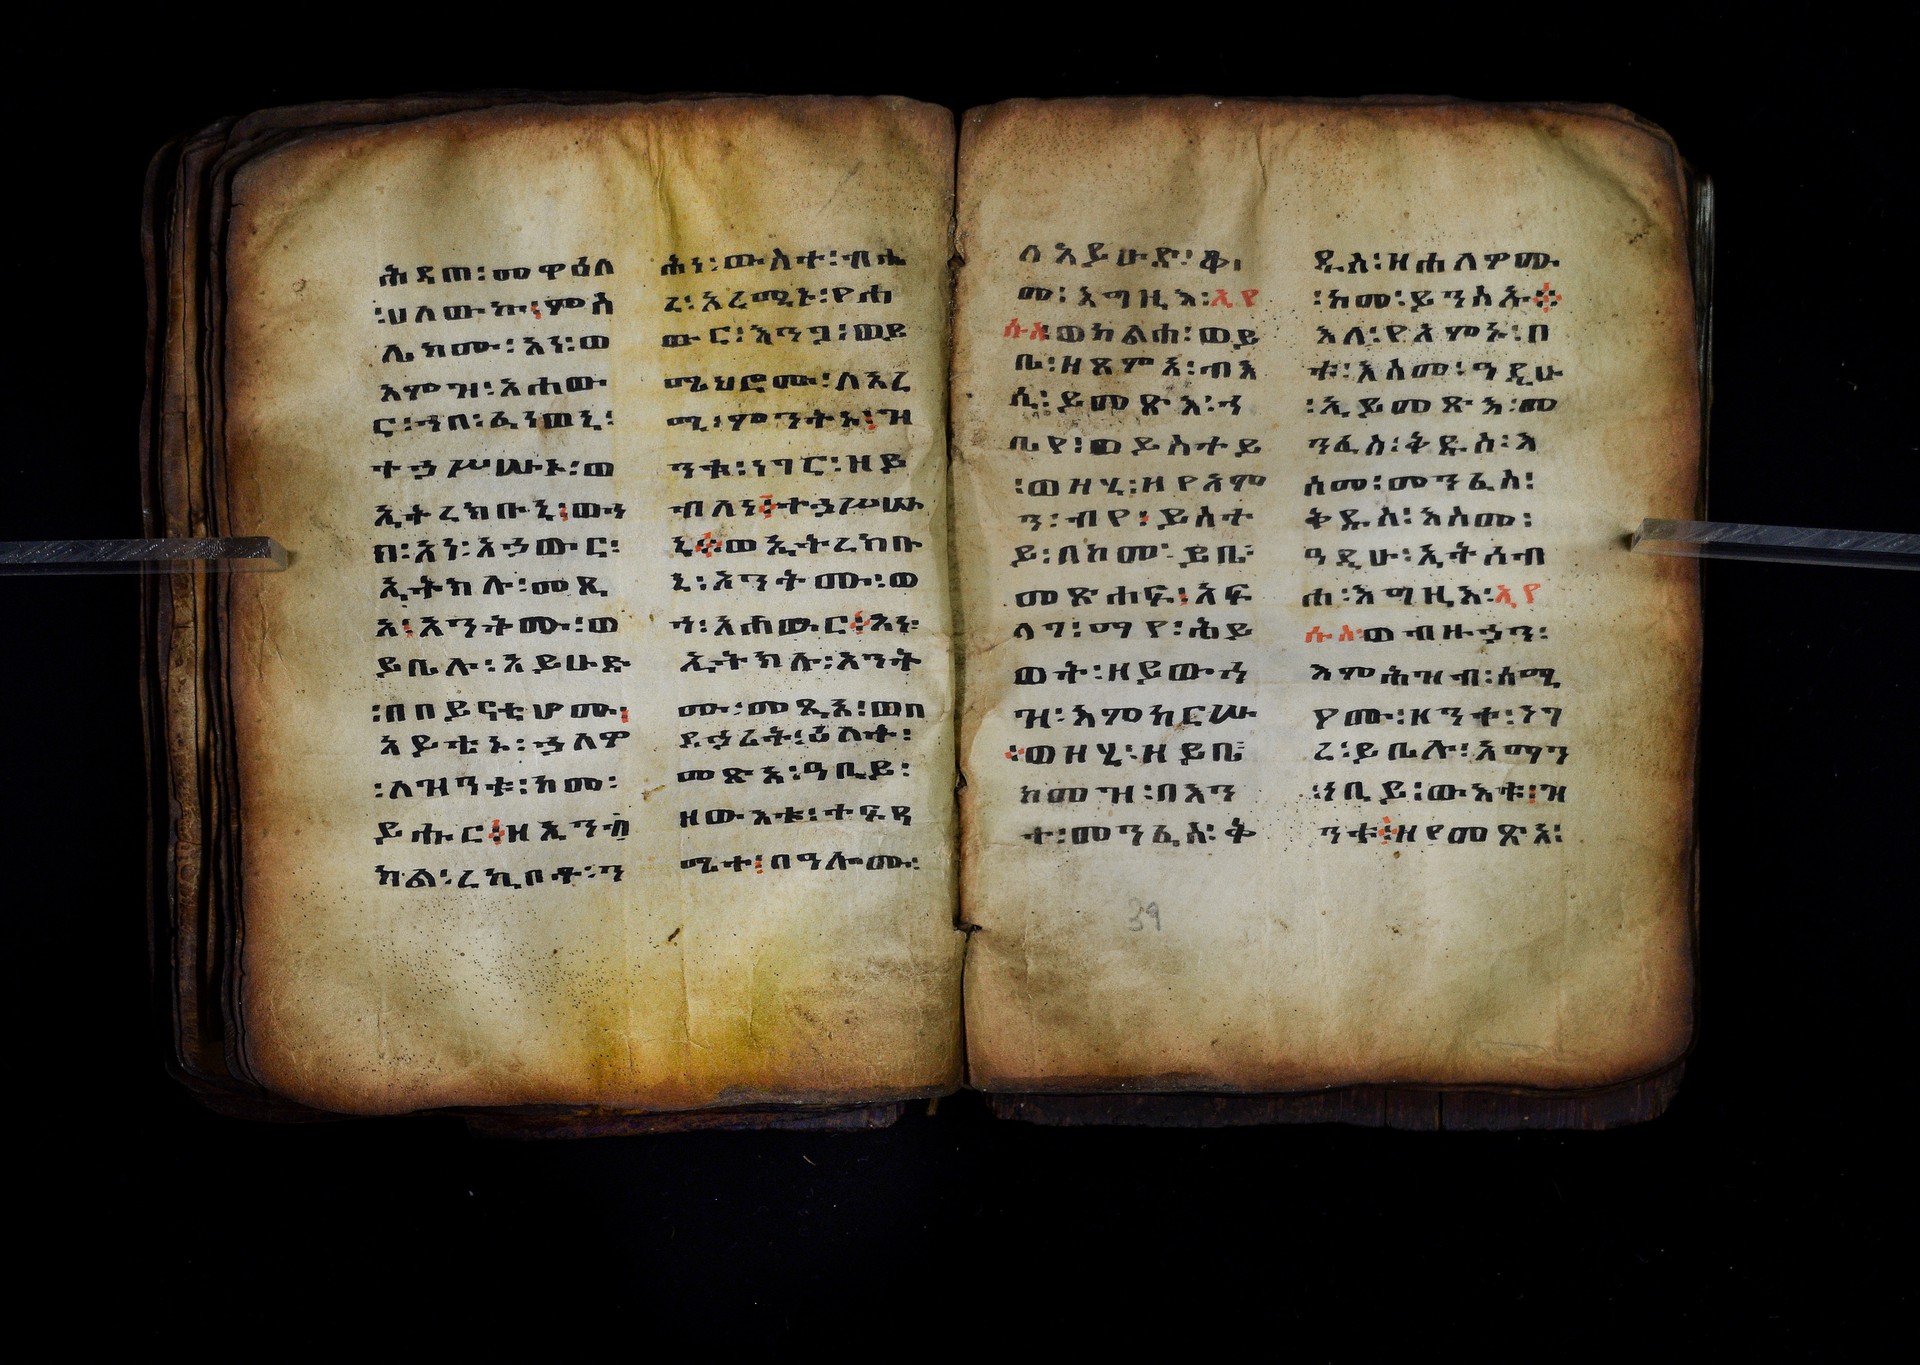 ሕዳጠ፡መዋዕለ
፡ሀለውኩ፡ምስ
ሌክሙ፡እን፡ወ
እምዝ፡አሐው
ር፡ኀበ፡ፈነወኒ፡
ተኃሥሡኒ፡ወ
ኢትረክቡኒ፡ወኀ
በ፡አነ፡አኃውር፡
ኢትክሉ፡መጺ
አ፡አንትሙ፡ወ
ይቤሉ፡አይሁድ
፡በበይናቲሆሙ፡
አይቴኑ፡ኃለዎ
፡ለዝንቱ፡ከመ፡
ይሑር፡ዘኢንብ
ክል፡ረኪቦቶ፡ን
ሕነ፡ውስተ፡ብሔ
ረ፡አረሚኑ፡የሐ
ውር፡እንጋ፡ወይ
ሜህሮሙ፡ለአረ
ሚ፡ምንትኑ፡ዝ
ንቱ፡ነገር፡ዘይ
ብለነ፡ተኃሥሡ
ኒ፡ወኢትረከቡ
ኒ፡አንትሙ፡ወ
ኀ፡አሐውር፡አነ፡
ኢትክሉ፡አንት
ሙ፡መጺአ፡ወበ
ደኃሪት፡ዕለት፡
መጽአ፡ዓቢይ፡
ዘውእቱ፡ተፍጻ
ሜተ፡በዓሎሙ፡
ለአይሁድ፡ቆ
መ፡እግዚእ፡ኢየ
ሱስ፡ወከልሐ፡ወይ
ቤ፡ዘጸምአ፡ብእ
ሲ፡ይመጽእ፡ኀ
ቤየ፡ወይስተይ
፡ወዘሂ፡ዘየአም
ን፡ብየ፡ይስተ
ይ፡በከመ፡ይቤ፡
መጽሐፍ፡አፍ
ላግ፡ማየ፡ሕይ
ወት፡ዘይውኅ
ዝ፡እምከርሡ
፡ወዘሂ፡ዘይቤ፡
ከመዝ፡በእን
ተ፡መንፈስ፡ቅ
ዱስ፡ዘሐለዎሙ
፡ከመ፡ይንስኡ፡
እለ፡የአምኑ፡በ
ቱ፡እስመ፡ዓዲሁ
፡ኢይመጽእ፡መ
ንፈስ፡ቅዱስ፡እ
ስመ፡መንፈስ፡
ቅዱስ፡እስመ፡
ዓዲሁ፡ኢትሰብ
ሐ፡እግዚእ፡ኢየ
ሱስ፡ወብዙኃን፡
እምሕዝብ፡ሰሚ
ዖሙ፡ዘንተ፡ነገ
ረ፡ይቤሉ፡አማን
፡ነቢይ፡ውእቱ፡ዝ
ንቱ፡ዘየመጽእ፡
39